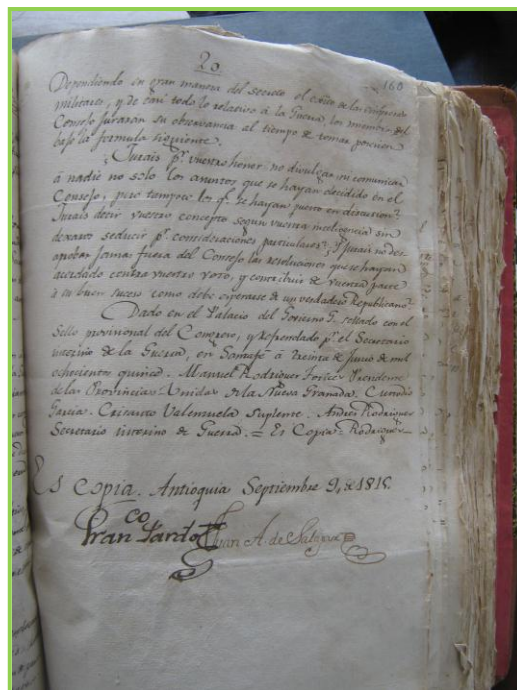 20
160
Dependiendo en gran manera del secreto el exito de las empresas
militares, y de casi todo lo relativo à la Guerra los miembros del
Consejo juraran su observancia al tiempo de tomar posesion
bajo la formula siguiente.
¿Jurais pr. vuestro honor no divulgar ni comunicar
à nadie no solo los asuntos que se hayan decidido en el
Consejo, pero tampoco los q.e se hayan puesto en discusion?
Jurais decir vuestro concepto segun vuestra inteligencia sin
dexaros seducir pr. consideraciones particulares? ¿Jurais no des-
aprobar jamas fuera del Consejo las resoluciones que se hayan
acordado contra vuestro voto, y contribuir de vuestra parte
à su buen suceso como debe esperarse de un verdadero Republicano?
Dado en el Palacio del Govierno G. sellado con el
Sello provisional del Congreso, y refrendado pr. el Secretario
interino de la Guerra, en Santafé à treinta de Junio de mil
ochocientos quince. Manuel Rodriguez Torices Presidente
de las Provincias Unidas de la Nueva Granada. Custodio
Garcia. Crisanto Valenzuela Suplente. Andres Rodriguez
Secretario interino de Guerra. = Es Copia = Rodriguez
Es Copia. Antioquia Septiembre 9, de 1815.
Franco Pardo Juan A. de